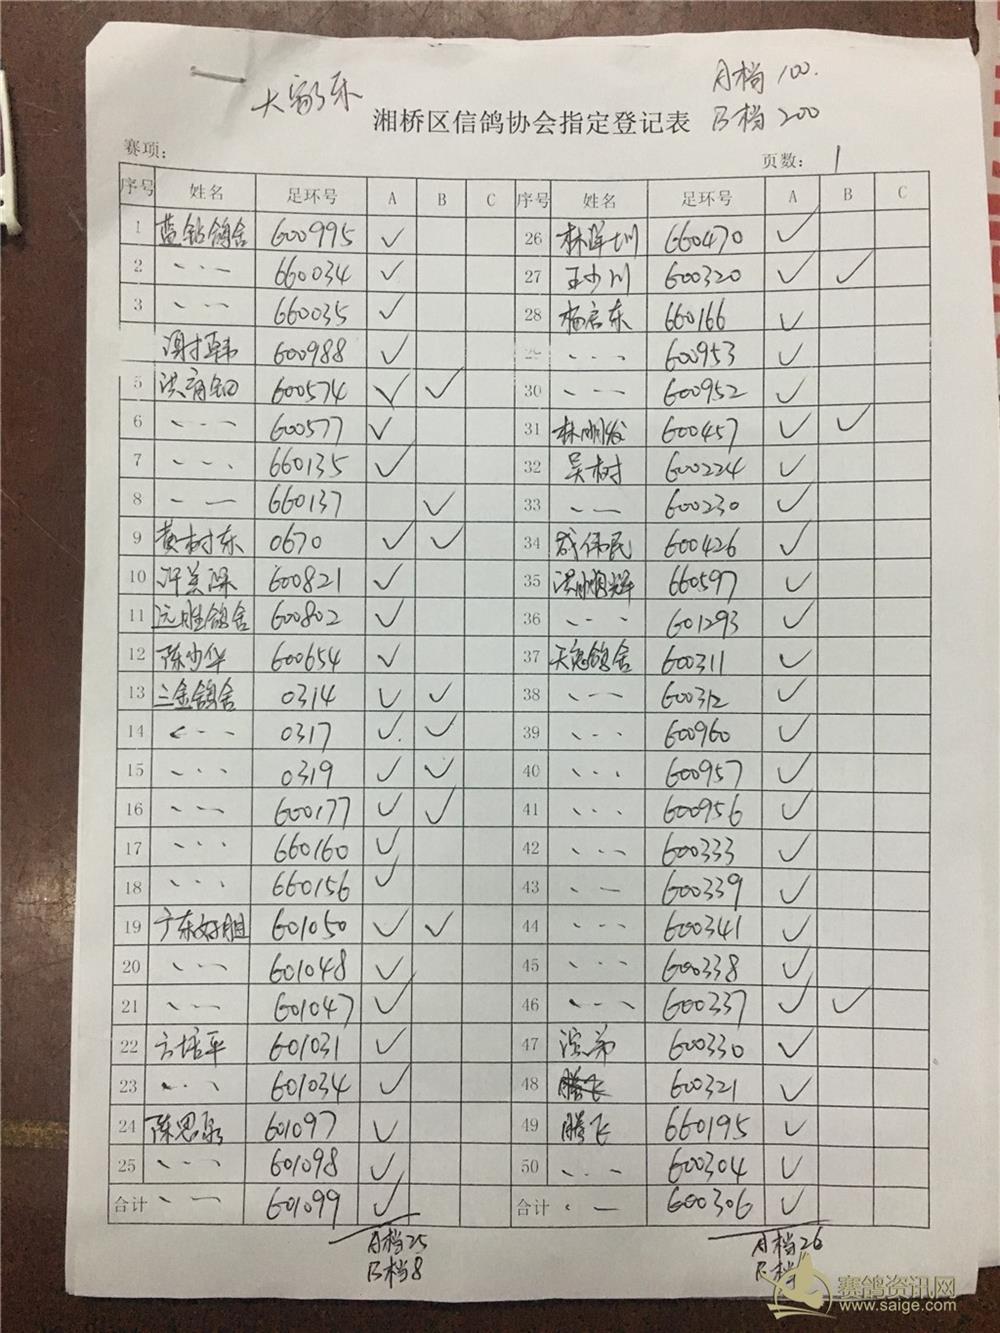 A档 100.
大家乐
湘桥区信鸽协会指定登记表 B档 200
赛项: 页数: 1
序号 姓名 足环号 A B C 序号 姓名 足环号 A B C
1 蓝钻鸽舍 600995 ✓ 26 660470 ✓
2 〃 660034 ✓ 27 王少川 600320 ✓ ✓
3 〃 660035 ✓ 28 杨启东 660166 ✓
600988 ✓ 29 〃 600953 ✓
5 600574 ✓ ✓ 30 〃 600952 ✓
6 〃 600577 ✓ 31 林明发 600457 ✓ ✓
7 〃 660135 ✓ 32 吴树 600224 ✓
8 〃 660137 ✓ 33 〃 600230 ✓
9 黄树东 0670 ✓ ✓ 34 600426 ✓
10 许美深 600821 ✓ 35 洪顺辉 660597 ✓
11 远胜鸽舍 600802 ✓ 36 〃 601293 ✓
12 陈少华 600654 ✓ 37 600311 ✓
13 三金鸽舍 0314 ✓ ✓ 38 〃 600312 ✓
14 〃 0317 ✓ ✓ 39 〃 600960 ✓
15 〃 0319 ✓ ✓ 40 〃 600957 ✓
16 〃 600177 ✓ ✓ 41 〃 600956 ✓
17 〃 660160 ✓ 42 〃 600333 ✓
18 〃 660156 ✓ 43 〃 600339 ✓
19 广东好胆 601050 ✓ ✓ 44 〃 600341 ✓
20 〃 601048 ✓ 45 〃 600338 ✓
21 〃 601047 ✓ 46 〃 600337 ✓ ✓
22 方培平 601031 ✓ 47 滨弟 600330 ✓
23 〃 601034 ✓ 48 600321 ✓
24 陈思泉 601097 ✓ 49 腾飞 660195 ✓
25 〃 601098 ✓ 50 〃 600304 ✓
合计 〃 601099 ✓ 合计 〃 600306 ✓
A档25 A档26
B档8 B档
赛鸽资讯网
www.saige.com